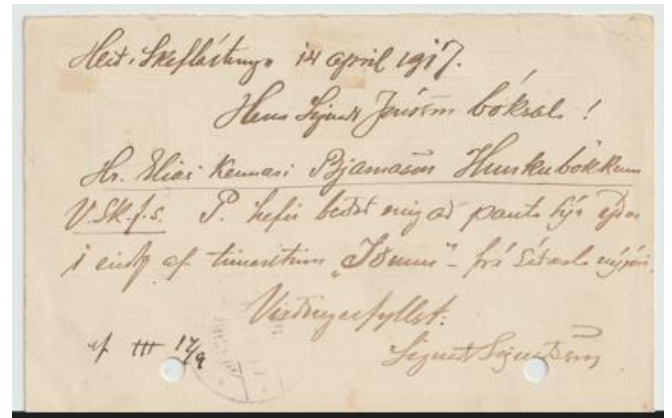 Heiði Skaftártungu 14 april 1917.
Herra Sigurdr Jónsson bóksali!
Hr. Elias kennari Bjarnason Hunkubökkum
V.Sk.f.s. P. hefir beðið mig að panta hjá yður
1 eintak af timaritinu „Iðunn" - frá siðasta nýjári.
Virðingarfyllst:
af III 17/9